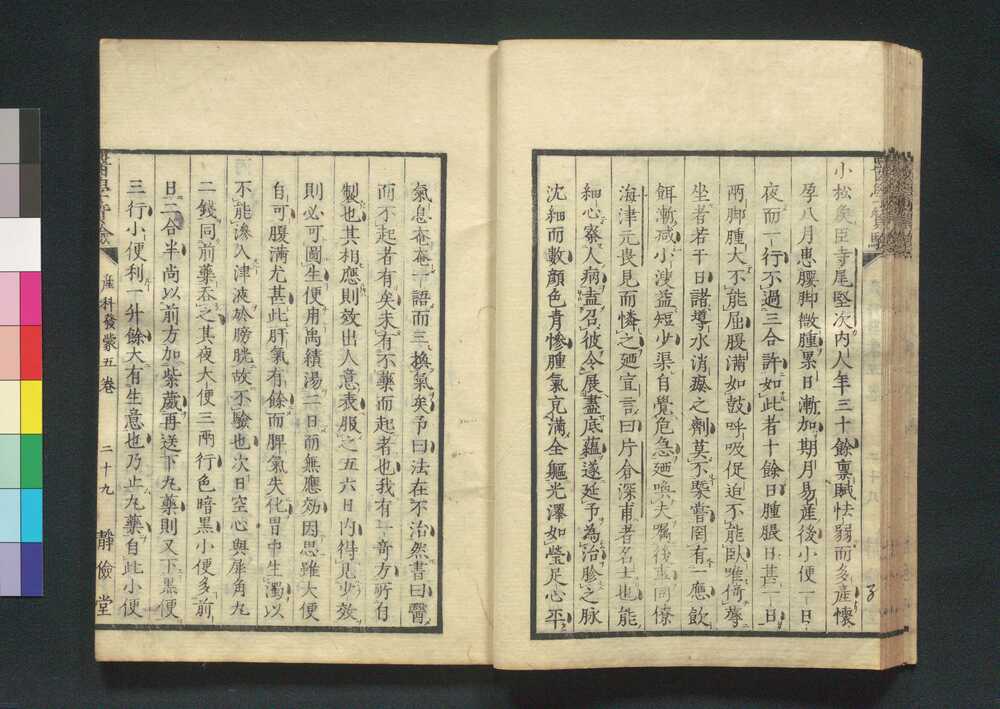 小松矦臣寺尾堅次內人年三十餘禀賦怯弱而多產懷
孕八月患腰脚微腫累日漸加期月易產後小便一日
夜而一行不過三合許如此者十餘日腫脹日甚一日
兩脚腫大不能屈腹滿如鼓呼吸促迫不能臥唯倚蓐
坐者若干日諸導水消爕之劑莫不甞罔有一應飲
餌漸减小溲益短少渠自覺危急廼喚夫嘱後事同僚
海津元畏見而憐之廼宜言曰片倉深甫者名士也能
細心察人病盍召彼令展盡底蘊遂延予為治胗之脉
沈細而數顏色青慘腫氣充滿全軀光澤如瑩足心平
氣息奄奄一語而三換氣矣予曰法在不治然書曰醫
而不起者有矣未有不藥而起者也我有一奇方所自
製也其相應則效出人意表服之五六日內得見少效
則必可圖生便用禹績湯二日而無應効因思雖大便
自可腹滿尤甚此肝氣有餘而脾氣失化胃中生濁以
不能滲入津液於膀胱故不驗也次日空心與犀角丸
二錢同前藥吞之其夜大便三兩行色暗黑小便多前
日二合半尚以前方加紫葳再送下丸藥則又下黑便
三行小便利一升餘大有生意也乃止丸藥自此小便
產科發蒙五卷
二十九
靜儉堂